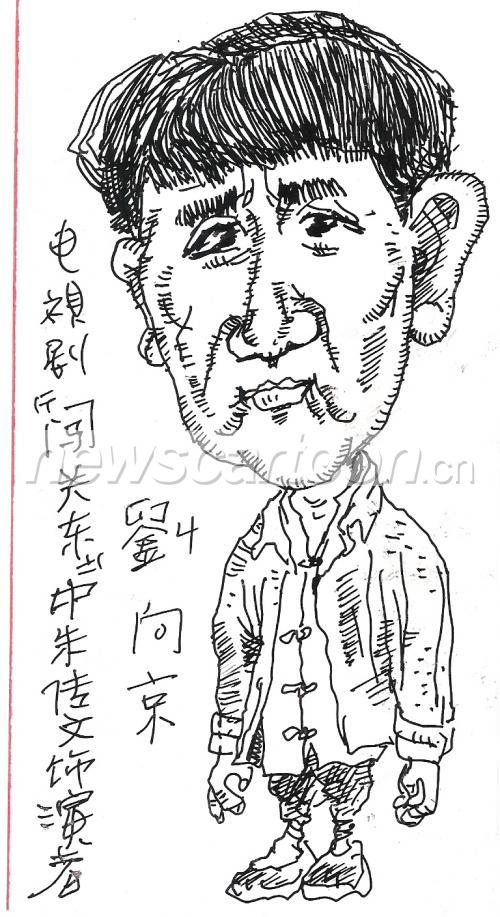 电视剧『闯关东』中朱传文饰演者
劉向京
newscartoon.cn